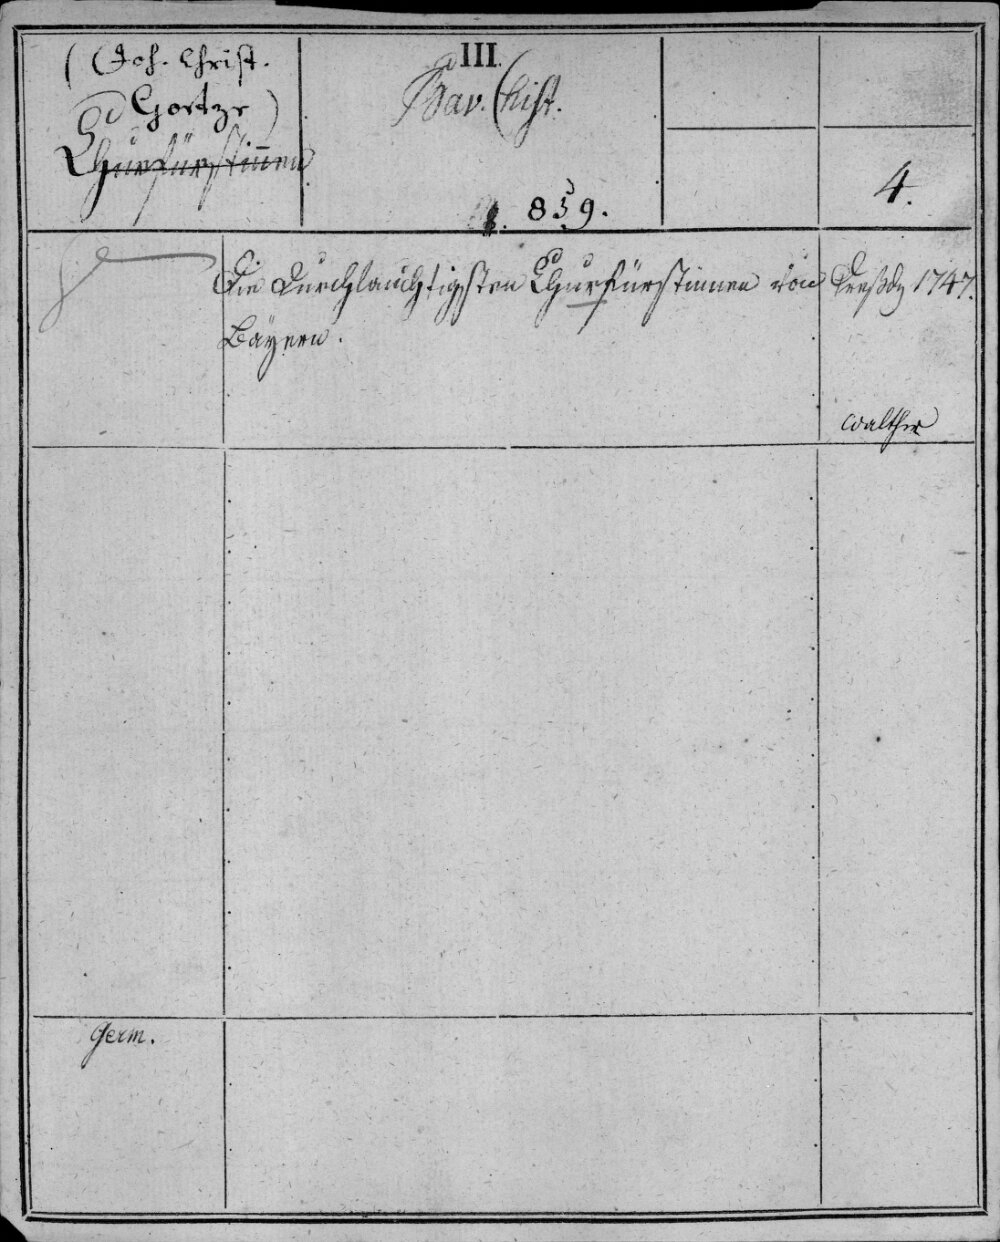 (Joh. Christ.
Goetze)
Churfürstinnen
III.
Bav. Hist.
859.
4.
Die durchlauchtigsten Churfürstinnen von
Bäyern.
Dreßdn 1747.
Walther
Germ.